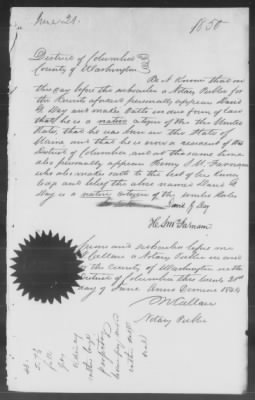 June 21.
1850
District of Columbia
County of Washington
Be it Known that on
this day before the subscriber a Notary Public for
the County aforesaid personally appears David
G. Day and makes Oath in due form of law
that he is a native citizen of the United
State, that he was born in the State of
Maine and that he is now a resident of the
District of Columbia and at the same time
also personally appears Henry S. M. Farnam
who also makes oath to the best of his know
ledge and belief the above named David G
Day is a native citizen of the United States
David G Day
H. S. Mc Farnam
Sworn and subscribed before me
Callan a Notary Public in and
for the County of Washington in the
District of Columbia this 21st
day of June Anno Domini 1850
Callan
Notary Public
5 ft
full
Gray
ordinary